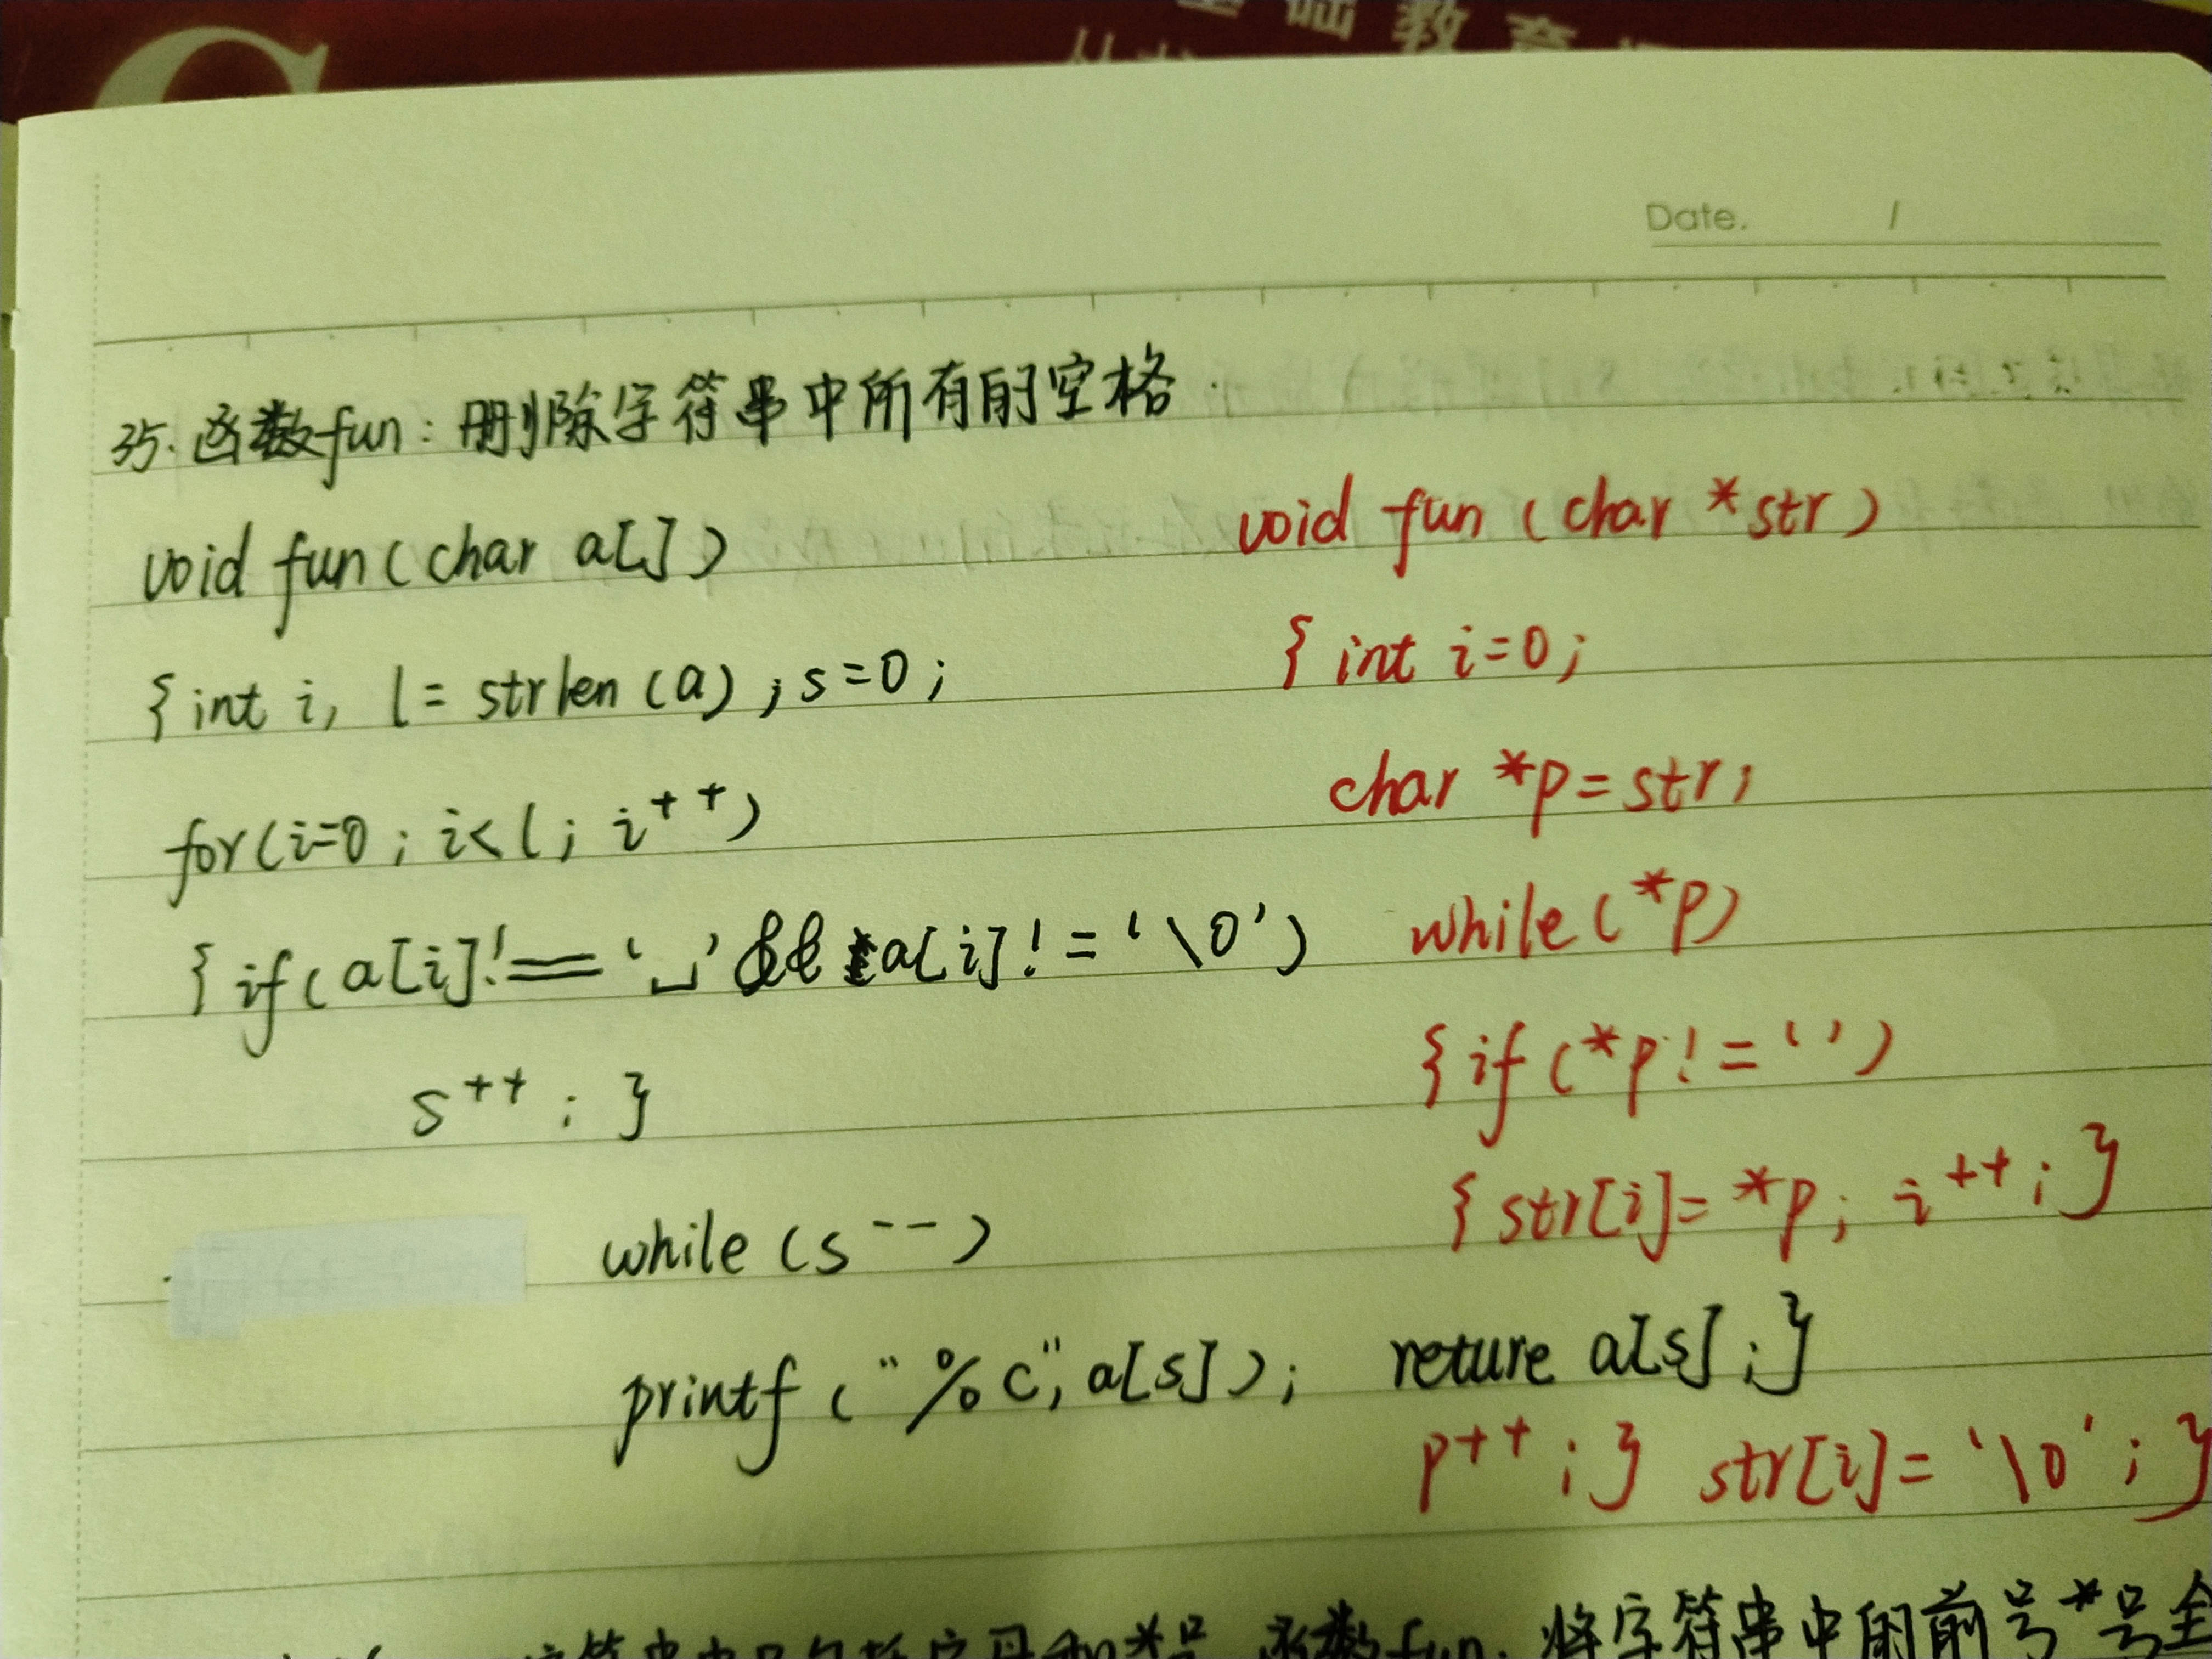 基础教育
Date. /
35. 函数fun: 删除字符串中所有的空格.
void fun(char a[])
{int i, l= strlen(a); s=0;
for(i=0; i<l; i++)
{if(a[i]!== '␣' && a[i]!='\0')
s++; }
while(s--)
printf("%c", a[s]); reture a[s];}
void fun(char *str)
{ int i=0;
char *p=str;
while(*p)
{if(*p!=' ')
{str[i]=*p; i++;}
p++;} str[i]='\0';}
字符串中只包括字母和*号 函数fun: 将字符串中的前号*号全